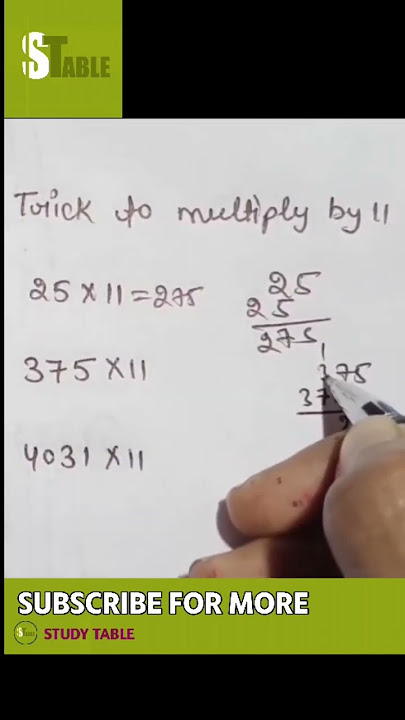 STABLE
Trick to multiply by 11
25 × 11 = 275
25
25
275
375 × 11
1
375
37
4031 × 11
SUBSCRIBE FOR MORE
STUDY TABLE